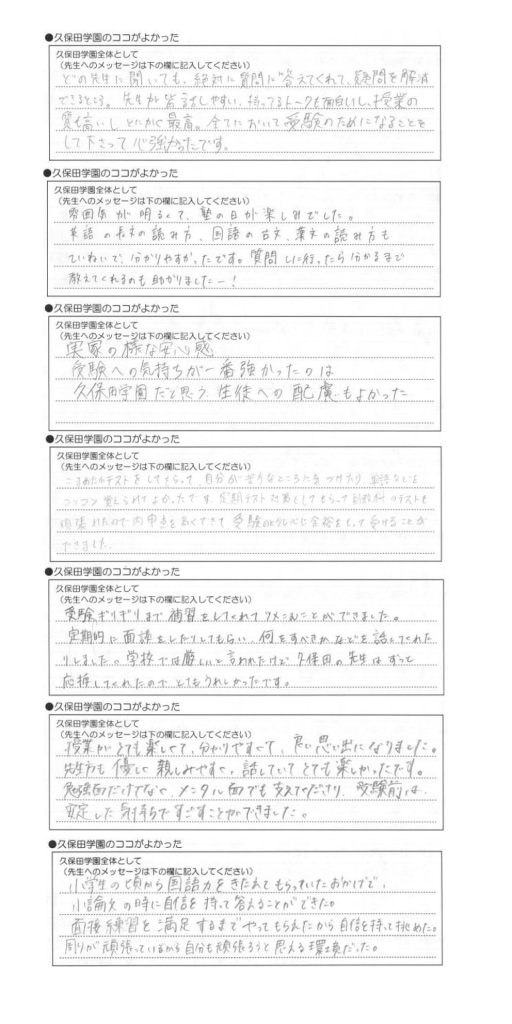 ●久保田学園のココがよかった
久保田学園全体として
（先生へのメッセージは下の欄に記入してください）
どの先生に聞いても、絶対に質問に答えてくれて、疑問を解消
できるところ。先生が皆話しやすい、持ってるトークも面白いし、授業の
質も高いしとにかく最高。全てにおいて受験のためになることを
して下さって心強かったです。
●久保田学園のココがよかった
久保田学園全体として
（先生へのメッセージは下の欄に記入してください）
雰囲気が明るくて、塾の日が楽しみでした。
英語の長文の読み方、国語の古文、漢文の読み方も
ていねいで、分かりやすかったです。質問しに行ったら分かるまで
教えてくれるのも助かりましたー！
●久保田学園のココがよかった
久保田学園全体として
（先生へのメッセージは下の欄に記入してください）
実家の様な安心感
受験への気持ちが一番強かったのは
久保田学園だと思う 生徒への配慮もよかった
●久保田学園のココがよかった
久保田学園全体として
（先生へのメッセージは下の欄に記入してください）
テストをしてもらって、自分が
コツコツ覚えられてよかったです。定期テスト対策もしてもらって副教科のテストも
頑張れたので内申点を高くできて受験の時も心に余裕をもって受けることが
できました。
●久保田学園のココがよかった
久保田学園全体として
（先生へのメッセージは下の欄に記入してください）
受験ギリギリまで補習をしてくれてつめこむことができました。
定期的に面談をしたりしてもらい、何をすべきかなどを話してくれた
りしました。学校では厳しいと言われたけど久保田の先生はずっと
応援してくれたのでとてもうれしかったです。
●久保田学園のココがよかった
久保田学園全体として
（先生へのメッセージは下の欄に記入してください）
授業がとても楽しくて、分かりやすくて、良い思い出になりました。
先生方も優しく親しみやすく、話していてとても楽しかったです。
勉強面だけでなく、メンタル面でも支えてくださり、受験前は
安定した気持ちですごすことができました。
●久保田学園のココがよかった
久保田学園全体として
（先生へのメッセージは下の欄に記入してください）
小学生の頃から国語力をきたえてもらっていたおかげで、
小論文の時に自信を持って答えることができた。
面接練習を満足するまでやってもらえたから自信を持って挑めた。
周りが頑張っているから自分も頑張ろうと思える環境だった。